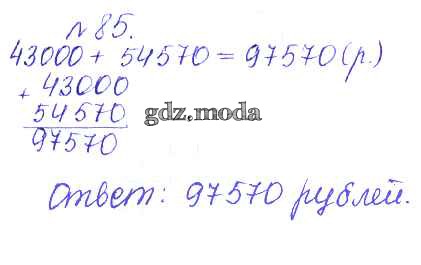 № 85.
43000 + 54570 = 97570 (р.)
+ 43000
54570
97570
gdz.moda
Ответ: 97570 рублей.